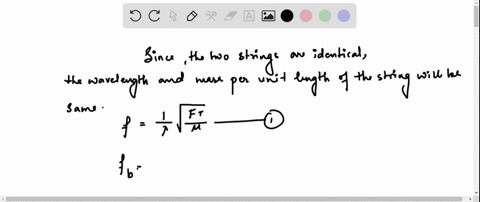 Since, the two strings are identical,
the wavelength and mass per unit length of the string will be
same.
f = 1/λ √(F_T/μ) ——— ①
f_b =